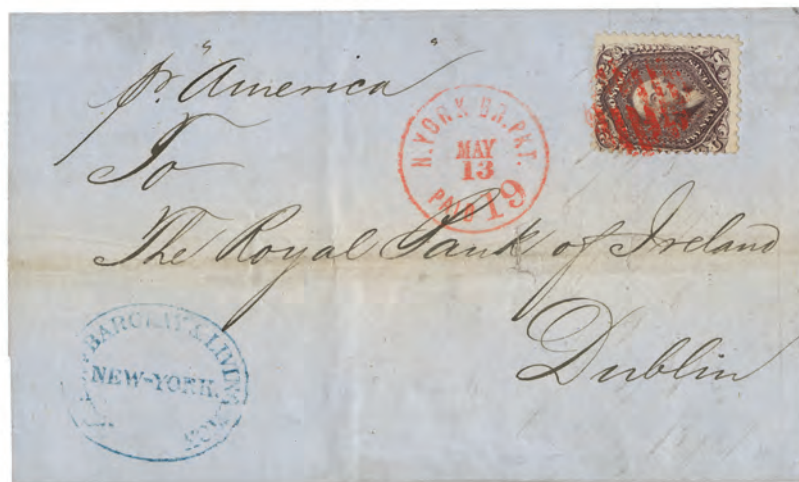 pr "America"
N. YORK BR. PKT.
MAY
13
PAID 19
To
The Royal Bank of Ireland
Dublin
BARCLAY & LIVINGSTON
NEW-YORK.